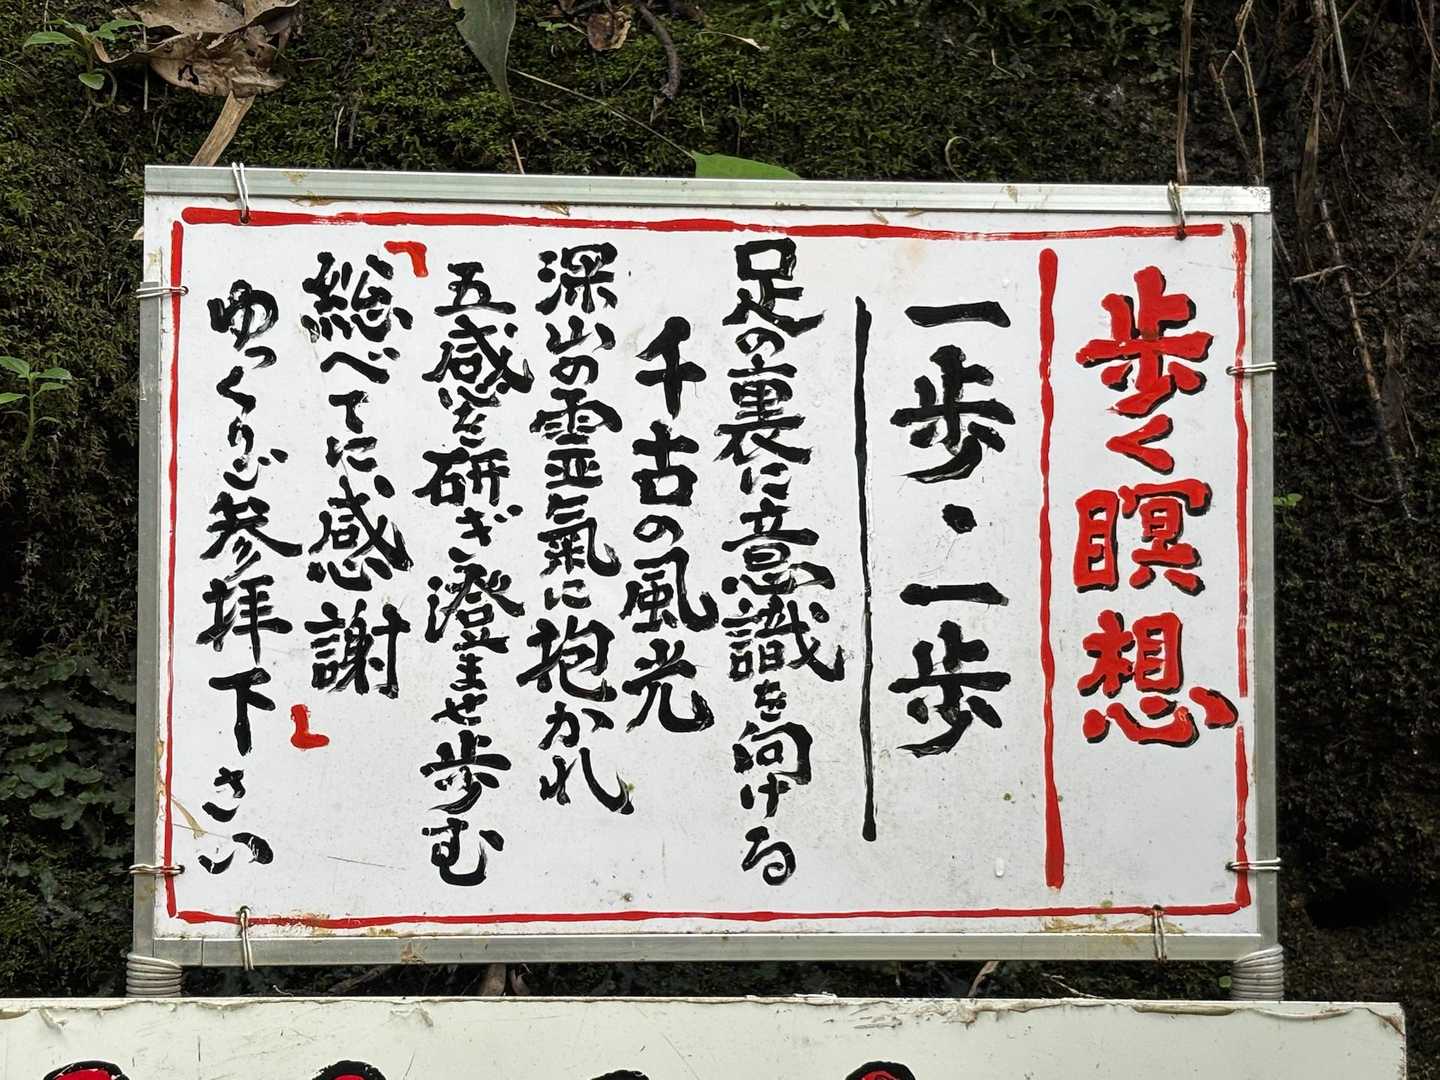 歩く瞑想
一歩・一歩
足の裏に意識を向ける
千古の風光
深山の霊氣に抱かれ
五感を研ぎ澄ませ歩む
「総べてに感謝」
ゆっくりご参拝下さい